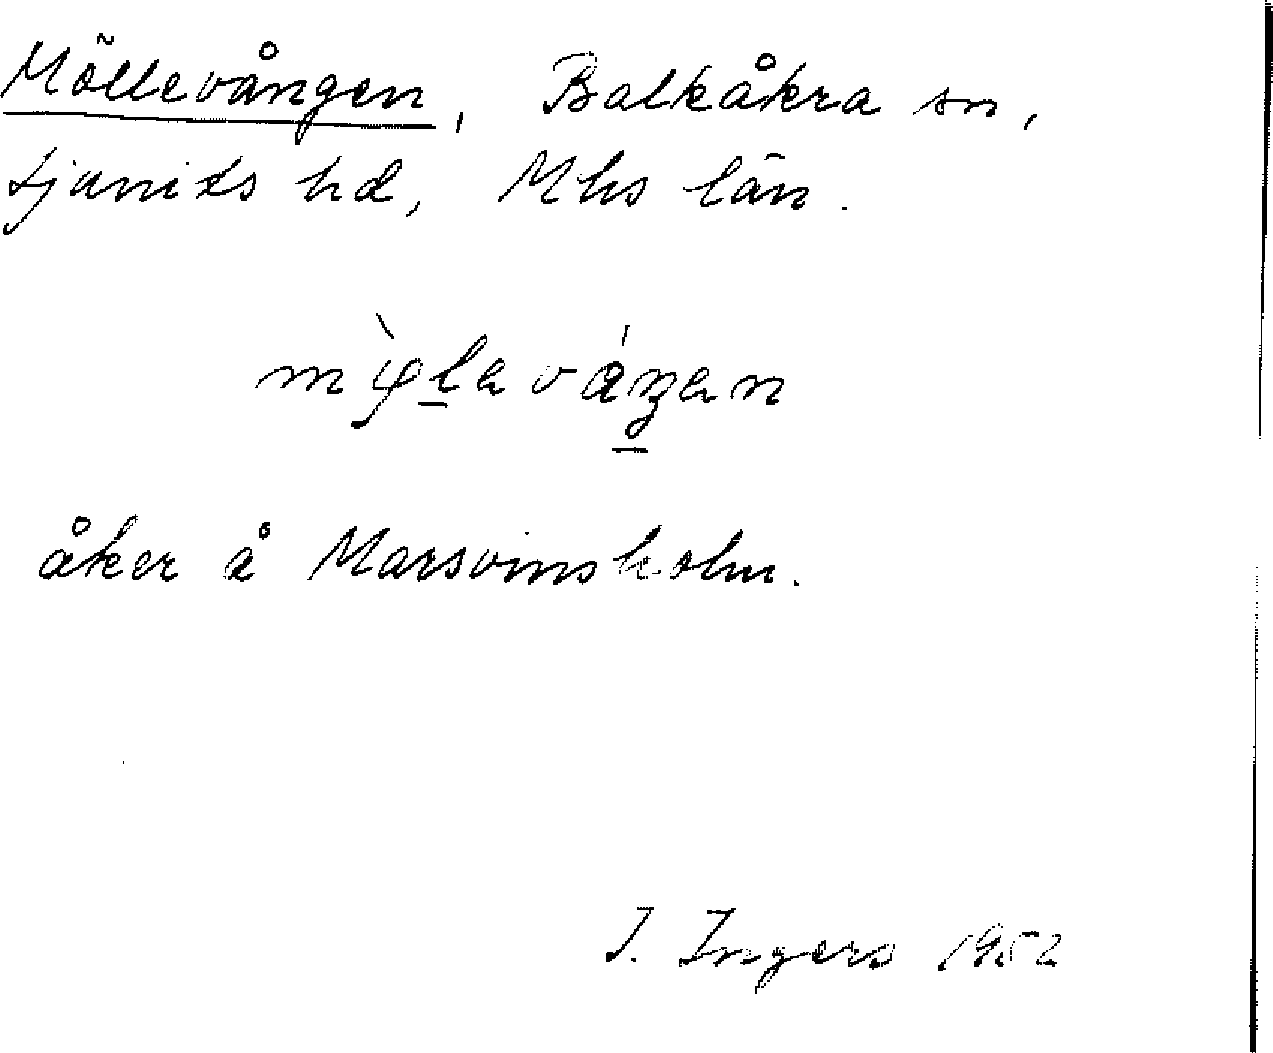 Möllevången, Balkåkra sn,
Ljunits hd, Mhs län.
åker å Marsvinsholm.
I. Ingers 1952